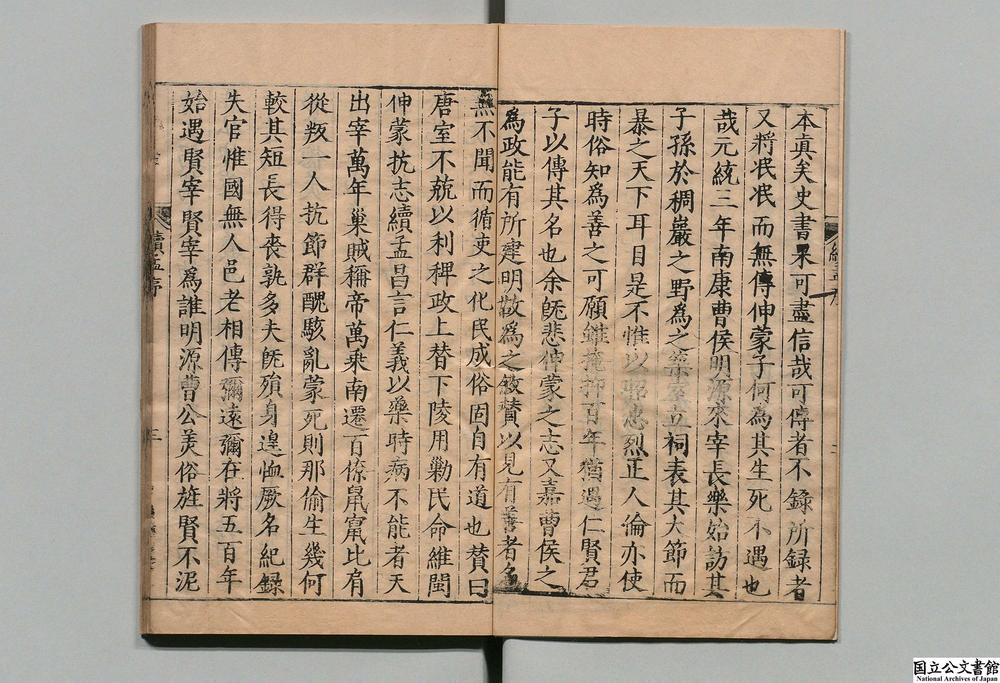 本真矣史書果可盡信哉可傳者不錄所録者
又將泯泯而無傳伸蒙子何為其生死不遇也
哉元統三年南康曹侯明源來宰長樂始訪其
子孫於稠巖之野為之築室立祠表其大節而
暴之天下耳目是不惟以昭忠烈正人倫亦使
時俗知為善之可願雖掩抑百年猶遇仁賢君
子以傳其名也余旣悲伸蒙之志又嘉曹侯之
為政能有所建明敬為之敘賛以見有善者
無不聞而循吏之化民成俗固自有道也賛曰
唐室不兢以利稗政上替下陵用勦民命維閩
伸蒙抗志續孟昌言仁義以藥時病不能者天
出宰萬年巢賊稱帝萬乘南遷百僚鼠竄比肩
從叛一人抗節群醜駭亂蒙死則那偷生幾何
較其短長得丧孰多夫旣殞身遑恤厥名紀録
失官惟國無人邑老相傳彌遠彌在將五百年
始遇賢宰賢宰為誰明源曹公美俗旌賢不泥
續孟序
三
国立公文書館
National Archives of Japan